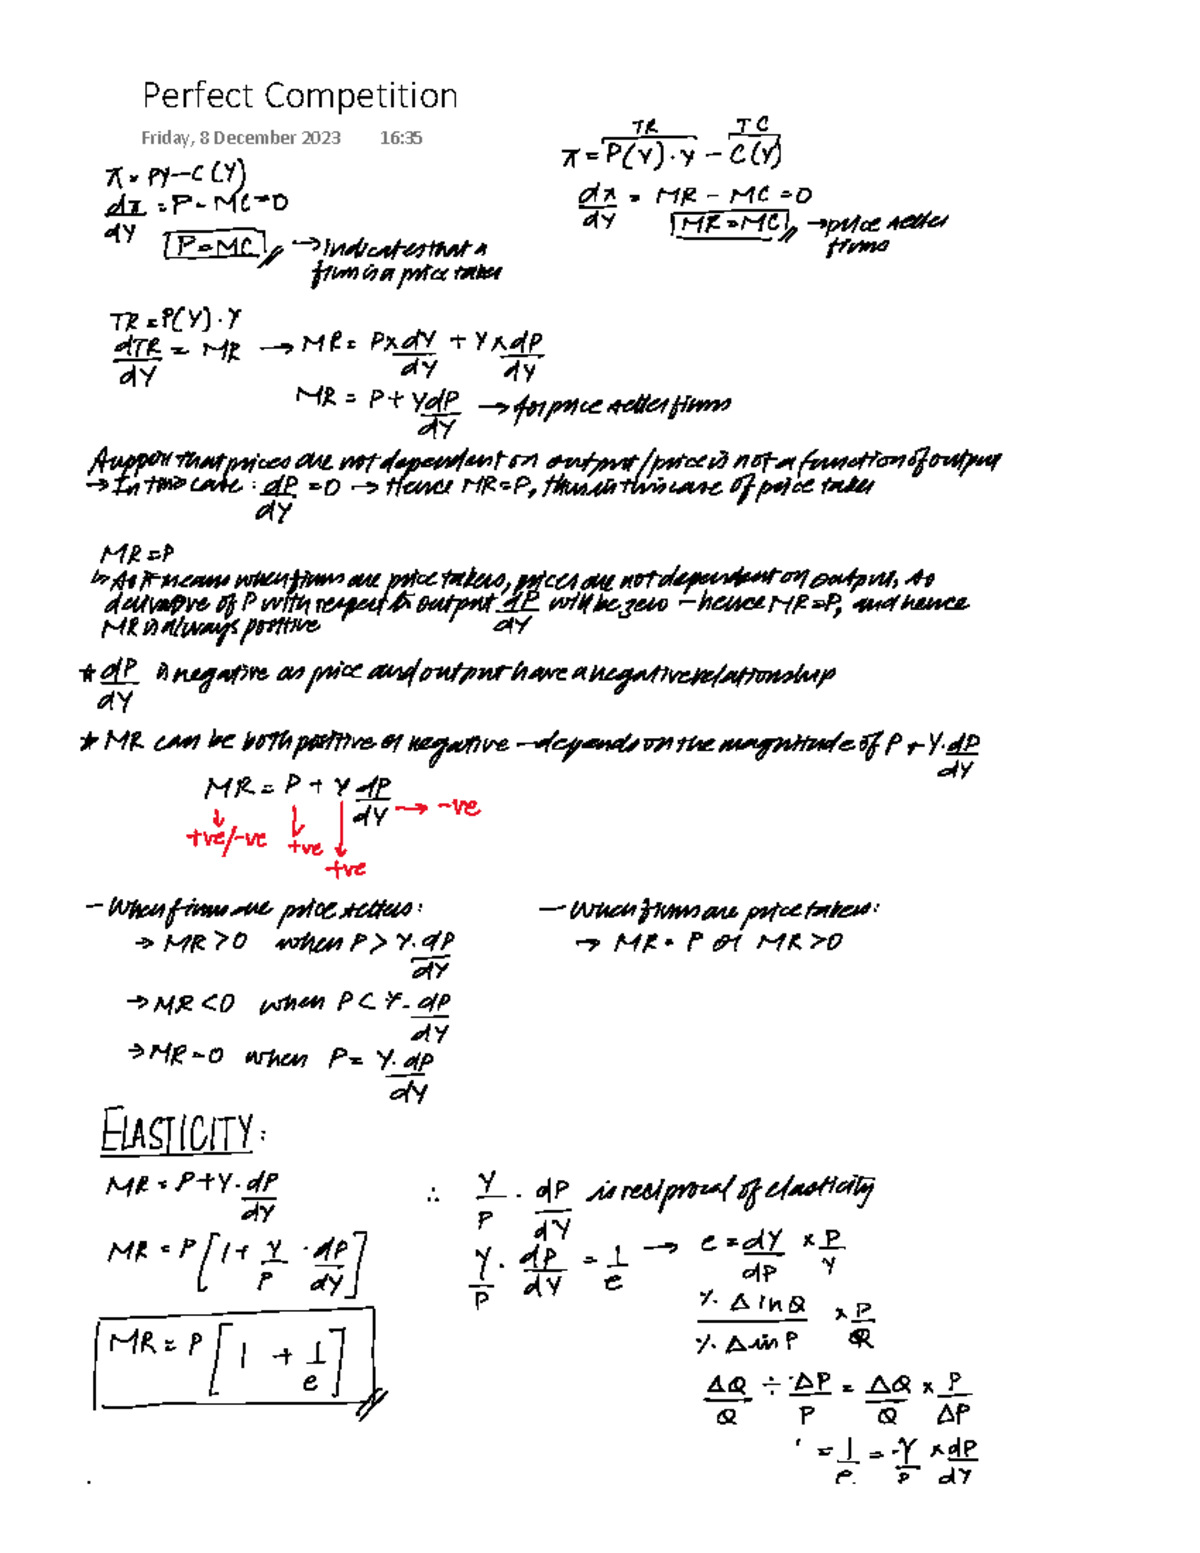 Perfect Competition
Friday, 8 December 2023 16:35
π = PY - C(Y)
dπ/dY = P - MC = 0
P = MC → Indicates that a
firm is a price taker
TR TC
π = P(Y)·Y - C(Y)
dπ/dY = MR - MC = 0
MR = MC → price setter
firms
TR = P(Y)·Y
dTR/dY = MR → MR = P x dY/dY + Y x dP/dY
MR = P + YdP/dY → for price setter firms
Suppose that prices are not dependent on output / price is not a function of output
→ In this case: dP/dY = 0 → Hence MR = P, thus in this case of price taker
MR = P
↳ As it means when firms are price takers, prices are not dependent on output, so
derivative of P with respect to output dP/dY will be zero - hence MR = P, and hence
MR is always positive
* dP/dY is negative as price and output have a negative relationship
* MR can be both positive or negative - depends on the magnitude of P + Y·dP/dY
MR = P + Y dP/dY → -ve
+ve/-ve +ve
+ve
- When firms are price setters:
→ MR > 0 when P > Y·dP/dY
→ MR < 0 when P < Y·dP/dY
→ MR = 0 when P = Y·dP/dY
- When firms are price takers:
→ MR = P or MR > 0
ELASTICITY:
MR = P + Y·dP/dY
MR = P [1 + Y/P · dP/dY]
MR = P [1 + 1/e]
∴ Y/P · dP/dY is reciprocal of elasticity
Y/P · dP/dY = 1/e → e = dY/dP x P/Y
% Δ in Q / % Δ in P x P/Q
ΔQ/Q ÷ ΔP/P = ΔQ/Q x P/ΔP
= 1/e = Y/P x dP/dY